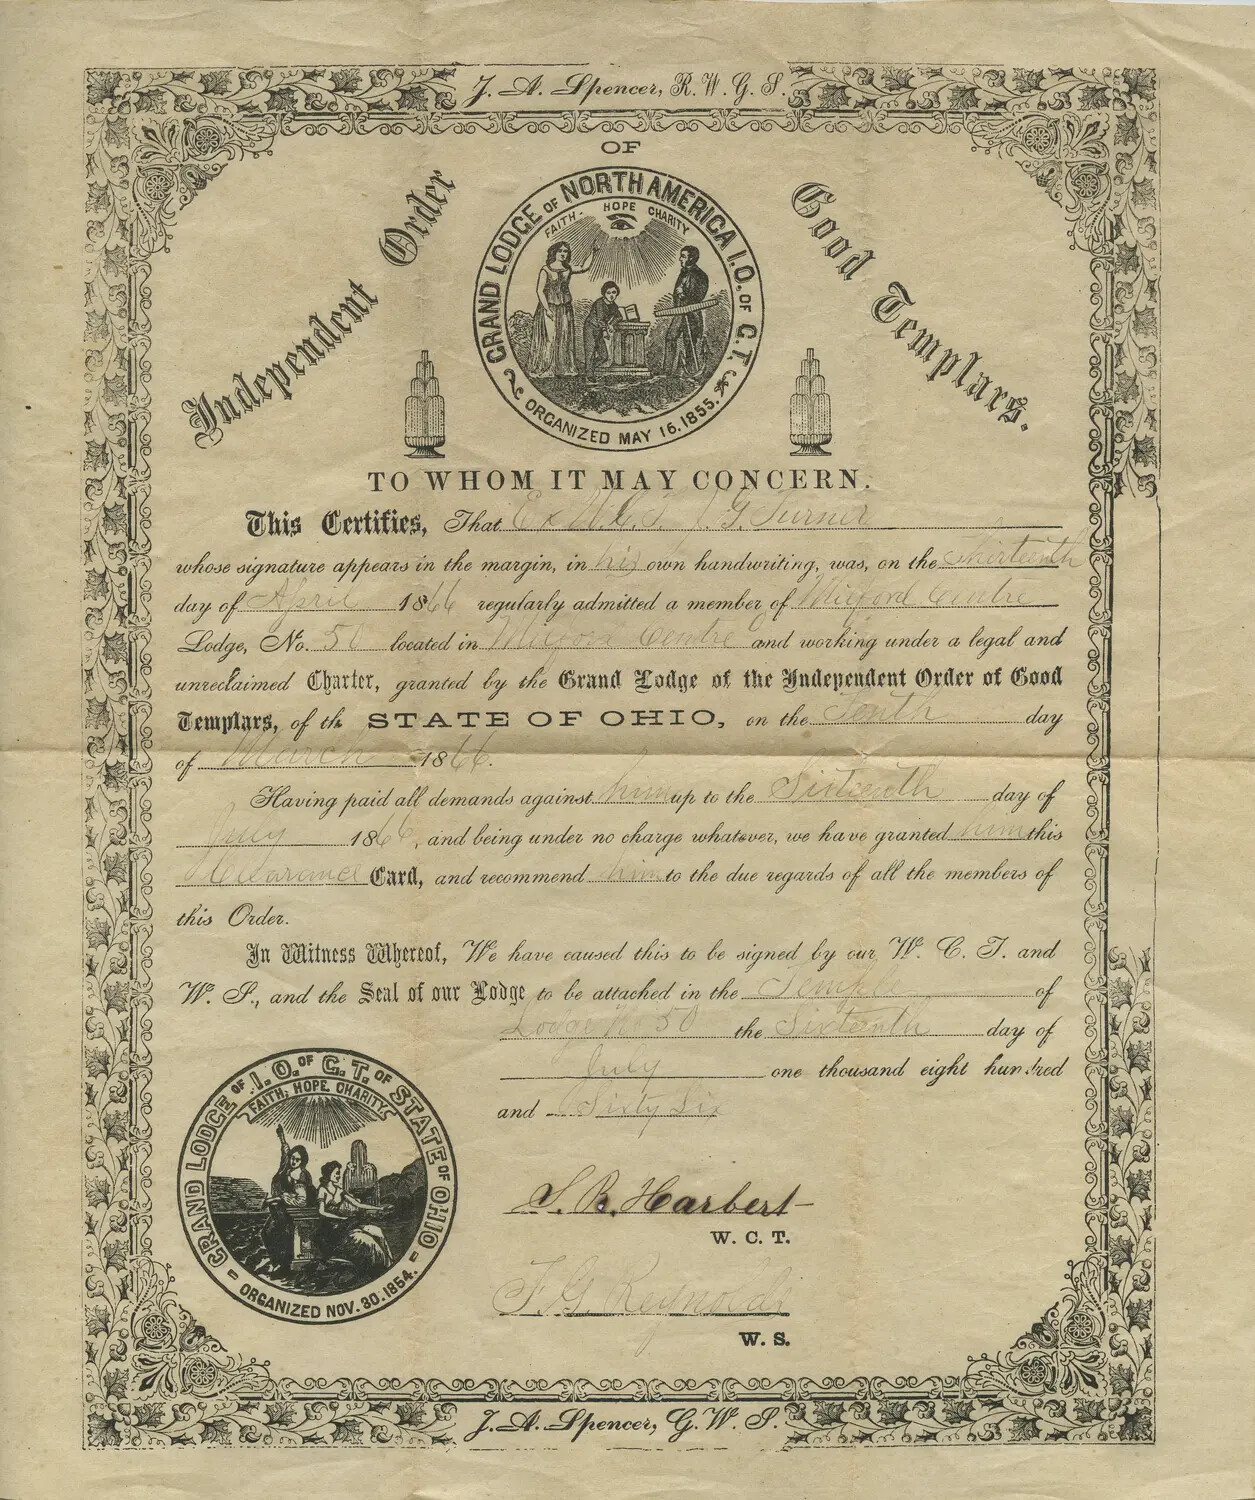 J. A. Spencer, R. W. G. S.
OF
Independent Order
Good Templars.
GRAND LODGE OF NORTH AMERICA I. O. OF G. T.
FAITH- HOPE CHARITY
ORGANIZED MAY 16. 1855.
TO WHOM IT MAY CONCERN.
This Certifies, That Ex W.C.T. J. G. Turner
whose signature appears in the margin, in his own handwriting, was, on the thirteenth
day of April 1866 regularly admitted a member of Milford Centre
Lodge, No. 50 located in Milford Centre and working under a legal and
unreclaimed Charter, granted by the Grand Lodge of the Independent Order of Good
Templars, of the STATE OF OHIO, on the Tenth day
of March 1866.
Having paid all demands against him up to the Sixteenth day of
July 1866, and being under no charge whatever, we have granted him this
Card, and recommend him to the due regards of all the members of
this Order.
In Witness Whereof, We have caused this to be signed by our W. C. T. and
W. S., and the Seal of our Lodge to be attached in the Temple of
Lodge No 50 the Sixteenth day of
July one thousand eight hundred
and Sixty Six
GRAND LODGE OF I. O. OF G. T. OF STATE OF OHIO
FAITH, HOPE, CHARITY
ORGANIZED NOV. 30. 1854.
S. R. Harbert
W. C. T.
F. G. Reynolds
W. S.
J. A. Spencer, G. W. S.